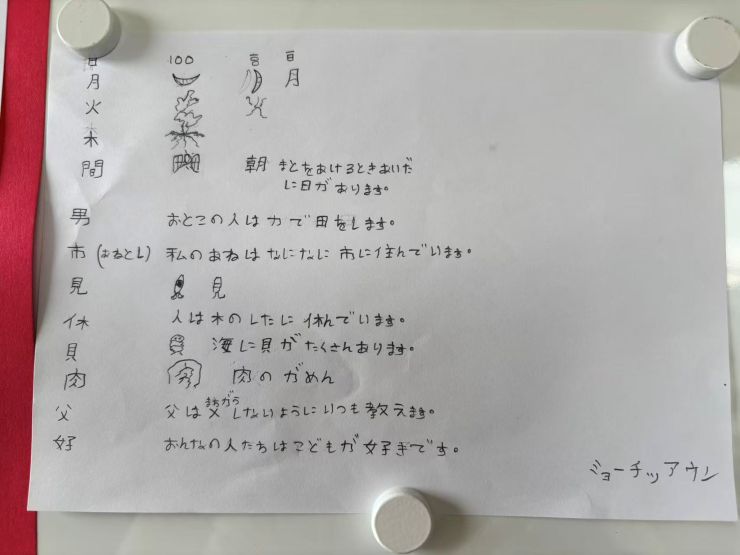 百 100 百 百
月 月
火
木
間 朝 まどをあけるときあいだ
に日があります。
男 おとこの人は力で田をします。
市(おねとし) 私のあねはなになに市に住んでいます。
見 見
休 人は木のしたに休んでいます。
貝 海に貝がたくさんあります。
肉 肉のがめん
父 父はまちがらしないようにいつも教えます。
好 おんなの人たちはこどもが好きです。
ジョーチッアウン